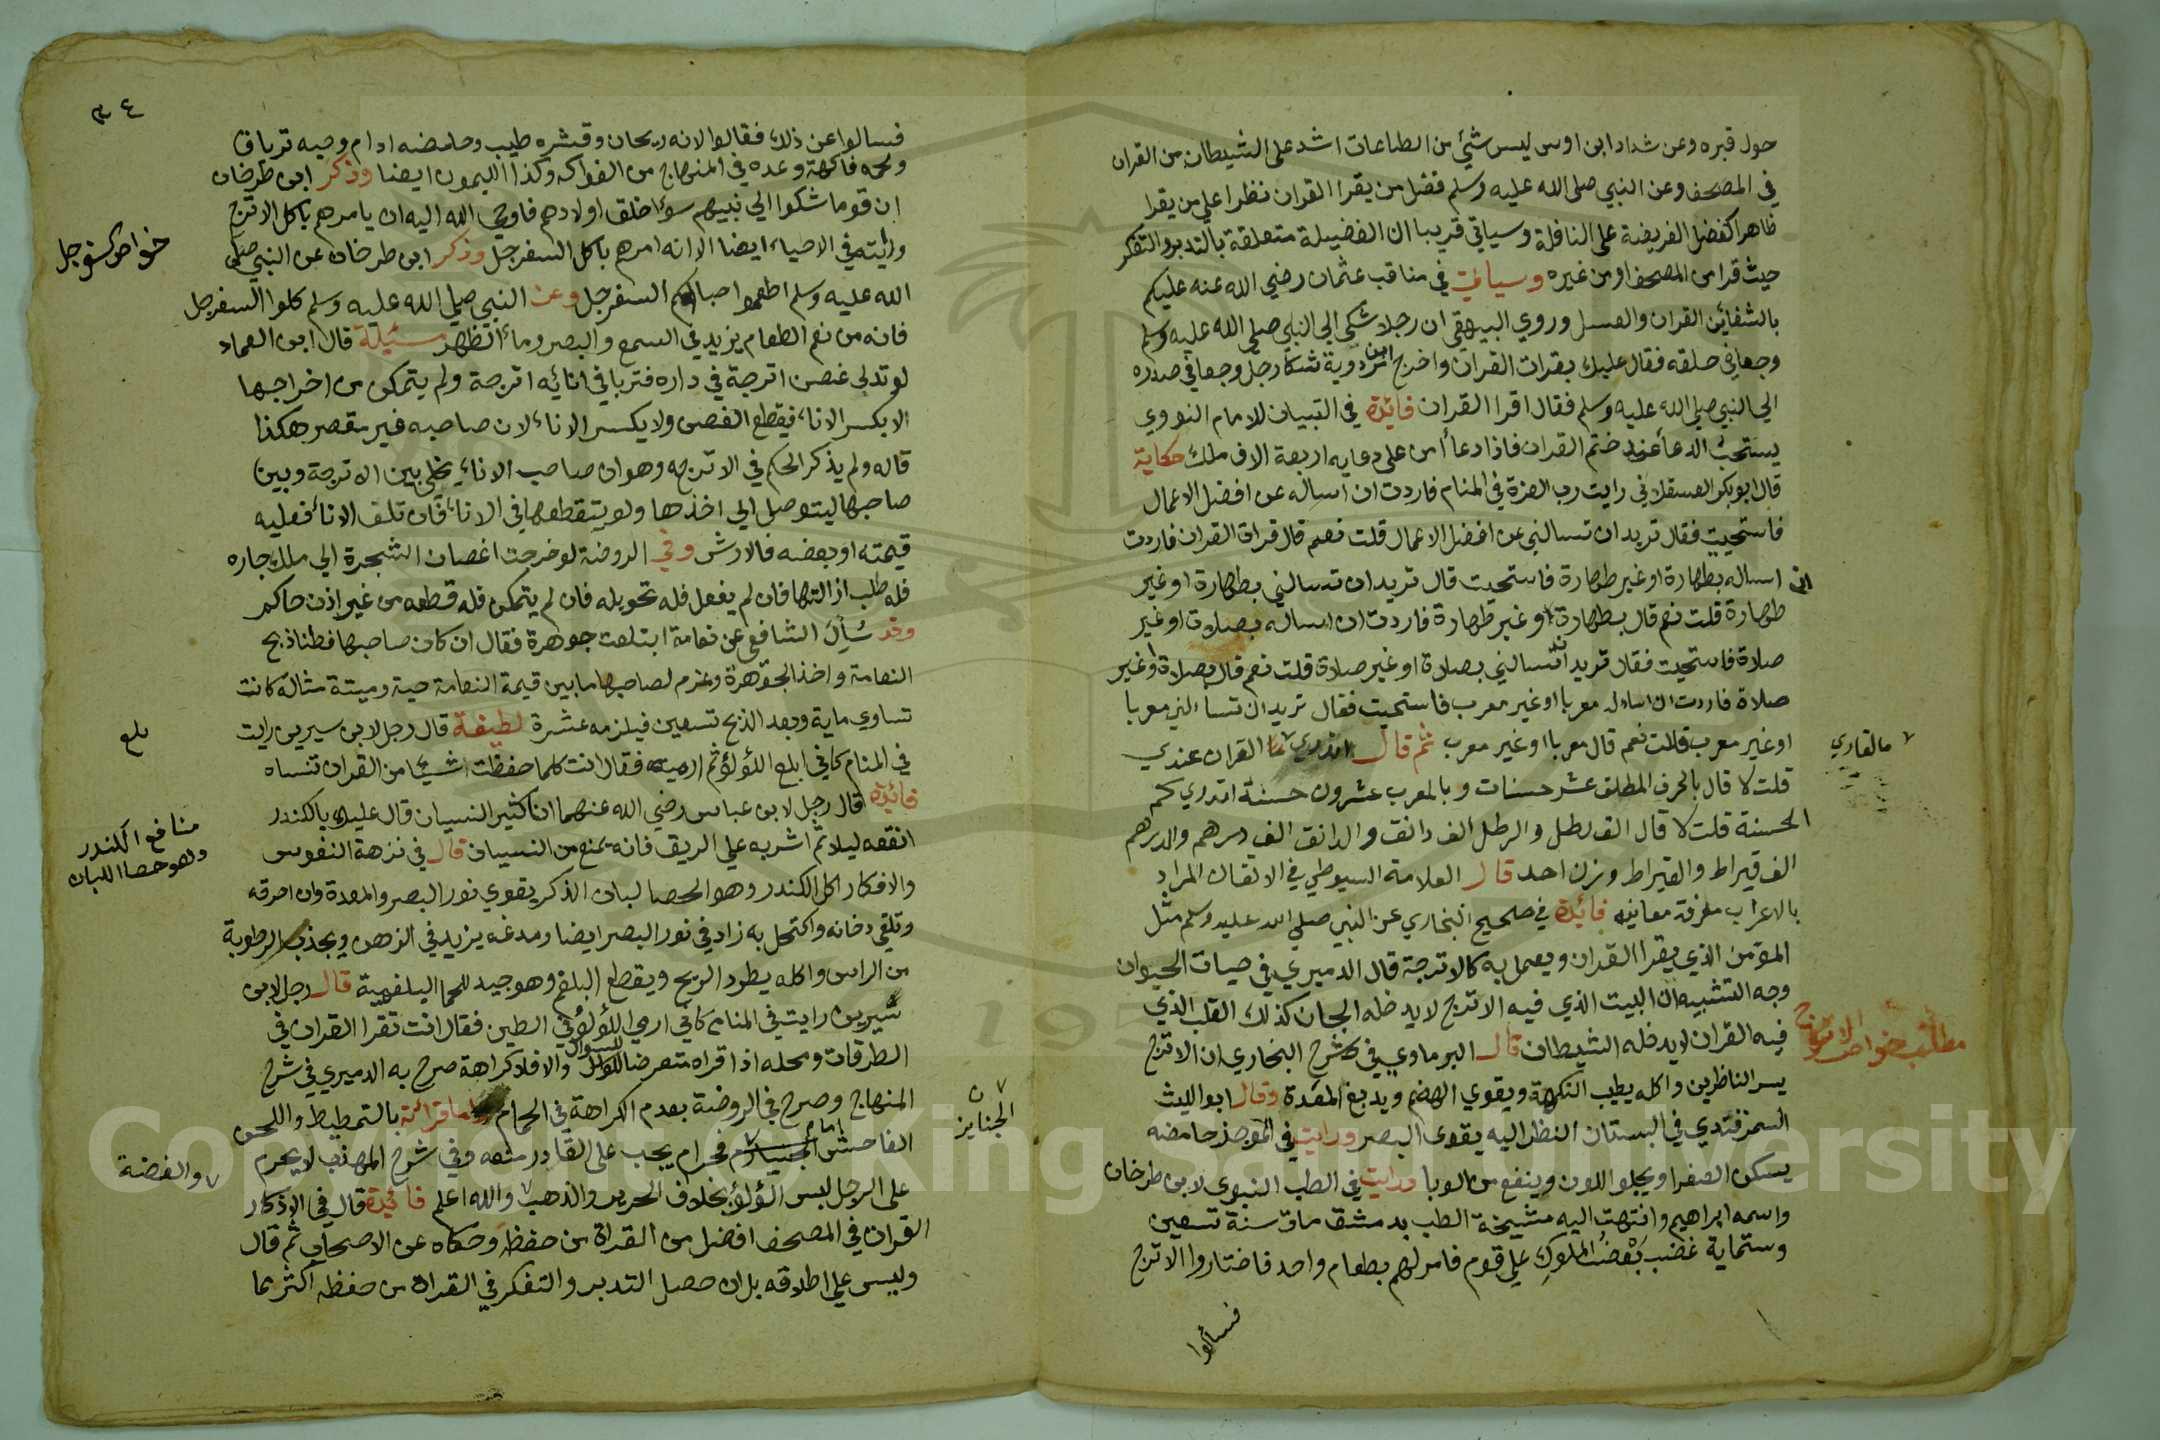 حول قبره وعن شداد ابن اوس ليس شيئ من الطاعات اشد على الشيطان من القران
في المصحف وعن النبي صلى الله عليه وسلم فضل من يقرا القران نظرا على من يقرا
ظاهرا كفضل الفريضة على النافلة وسياتي قريبا ان الفضيلة متعلقة بالتدبر والتفكر
حيث قرا من المصحف او من غيره وسياتي في مناقب عثمان رضي الله عنه عليكم
بالشفائين القران والعسل وروي البيهقي ان رجلا شكى الي النبي صلى الله عليه وسلم
وجعا في حلقه فقال عليك بقرات القران واخرج ابن مردوية شكا رجل وجعا في صدره
الي النبي صلى الله عليه وسلم فقال اقرا القران فائدة في التبيان للامام النووي
يستحب الدعا عند ختم القران فاذا دعا أمن على دعايه اربعة الاف ملك حكاية
قال ابو بكر العسقلاني رايت رب العزة في المنام فاردت ان اساله عن افضل الاعمال
فاستحيت فقال تريد ان تسالني عن افضل الاعمال قلت نعم قال قراة القران فاردت
ان اساله بطهارة او غير طهارة فاستحيت قال تريد ان تسالني بطهارة او غير
طهارة قلت نعم قال بطهارة او غير طهارة فاردت ان اساله بصلاة او غير
صلاة فاستحيت فقال تريد ان تسالني بصلاة او غير صلاة قلت نعم قال بصلاة او غير
صلاة فاردت ان اساله معربا او غير معرب فاستحيت فقال تريد ان تسالني معربا
او غير معرب قلت نعم قال معربا او غير معرب ثم قال اتدري ما القران عندي
مالقاري
قلت لا قال بالحرف المطلق عشر حسنات وبالمعرب عشرون حسنة اتدري كم
الحسنة قلت لا قال الف رطل والرطل الف دانق والدانق الف درهم والدرهم
الف قيراط والقيراط وزن احد قال العلامة السيوطي في الاتقان المراد
بالاعراب معرفة معانيه فائدة في صحيح البخاري عن النبي صلى الله عليه وسلم مثل
المؤمن الذي يقرا القران ويعمل به كالاترجة قال الدميري في حيات الحيوان
وجه التشبيه ان البيت الذي فيه الاترج لا يدخله الجان كذلك القلب الذي
فيه القران لا يدخله الشيطان قال البرماوي في شرح البخاري ان الاترج
مطلب خواص الاترنج
يسر الناظرين واكله يطيب النكهة ويقوي الهضم ويدبغ المعدة وقال ابو الليث
السمرقندي في البستان النظر اليه يقوي البصر ورايت في الموجز حامضه
يسكن الصفرا ويجلو اللون وينفع من الوبا ورايت في الطب النبوي لابن طرخان
واسمه ابراهيم وانتهت اليه مشيخة الطب بدمشق مات سنة تسعين
وستماية غضب بعض الملوك علي قوم فامر لهم بطعام واحد فاختاروا الاترج
فسألوا
٣٤
فسالوا عن ذلك فقالوا لانه ريحان وقشره طيب وحامضه ادام وحبه ترياق
ولحمه فاكهة وعده في المنهاج من الفواكه وكذا الليمون ايضا وذكر ابن طرخان
ان قوما شكوا الي نبيهم سوء خلق اولادهم فاوحي الله اليه ان يامرهم باكل الاترج
ورايته في الاحياء ايضا الا انه امرهم باكل السفرجل وذكر ابن طرخان عن النبي صلى
خواص السفرجل
الله عليه وسلم اطعموا حبالكم السفرجل وعن النبي صلى الله عليه وسلم كلوا السفرجل
فانه من نعم الطعام يزيد في السمع والبصر وماء الظهر مسئيلة قال ابن العماد
لو تدلى غصن اترجة في داره فتربا في انائه اترجة ولم يتمكن من اخراجها
الا بكسر الاناء فيقطع الغصن ولا يكسر الاناء لان صاحبه غير مقصر هكذا
قاله ولم يذكر الحكم في الاترجه وهو ان صاحب الاناء يخلي بين الاترجة وبين
صاحبها ليتوصل الي اخذها ولو بتقطعها في الاناء فان تلف الاناء فعليه
قيمته او بعضه فالارش وفي الروضة لو خرجت اغصان الشجرة الي ملك جاره
فله طلب ازالتها فان لم يفعل فله تحويله فان لم يتمكن فله قطعه من غير اذن حاكم
وقد سُئل الشافعي عن نعامة ابتلعت جوهرة فقال ان كان صاحبها فطنا ذبح
النعامة واخذ الجوهرة وغرم لصاحبها مابين قيمة النعامة حية وميتة مثاله كانت
تساوي ماية وبعد الذبح تسعين فيلزمه عشرة لطيفة قال رجل لابن سيرين رايت
بلع
في المنام كاني ابلع اللؤلؤ ثم ارميه فقال انت كلما حفظت شيئا من القران تنساه
فائدة قال رجل لابن عباس رضي الله عنهما انا كثير النسيان قال عليك بالكندر
منافع الكندر
وهو حصا اللبان
انقعه ليلا ثم اشربه علي الريق فانه يمنع من النسيان قال في نزهة النفوس
والافكار اكل الكندر وهو الحصا لبان الذكر يقوي نور البصر والمعدة وان احرقه
وتلقي دخانه واكتحل به زاد في نور البصر ايضا ومدغه يزيد في الذهن ويجذب الرطوبة
من الراس واكله يطرد الريح ويقطع البلغم وهو جيد للحما البلغمية قال رجل لابن
سيرين رايت في المنام كاني ارمي اللؤلؤ في الطين فقال انت تقرا القران في
الطرقات ومحله اذا قراه متعرضا للسوال والا فلا كراهة صرح به الدميري في شرح
المنهاج وصرح في الروضة بعدم الكراهة في الحمام واما قرائة بالتمطيط واللحن
الجنايز
الفاحش امام فحرام يجب على القادر منعه وفي شرح المهذب لا يحرم
على الرجل لبس اللؤلؤ بخلاف الحرير والذهب والله اعلم فائيدة قال في الاذكار
والفضة
القران في المصحف افضل من القراة من حفظه وحكاه عن الاصحاب ثم قال
وليس علي اطلاقه بل ان حصل التدبر والتفكر في القراة من حفظه اكثر مما